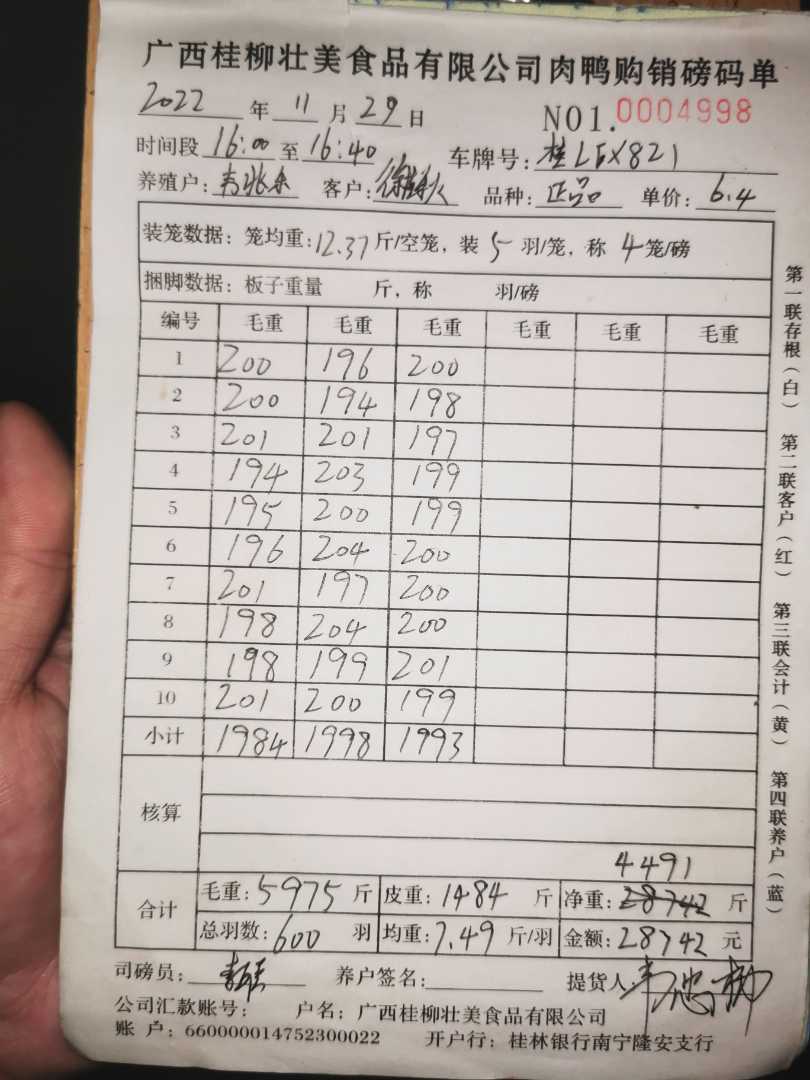 广西桂柳壮美食品有限公司肉鸭购销磅码单
2022 年 11 月 29 日 NO1.0004998
时间段 16:00 至 16:40 车牌号: 桂LFX821
养殖户: 客户: 品种: 正品 单价: 6.4
装笼数据: 笼均重: 12.37 斤/空笼, 装 5 羽/笼, 称 4 笼/磅
捆脚数据: 板子重量 斤, 称 羽/磅
编号 毛重 毛重 毛重 毛重 毛重 毛重
1 200 196 200
2 200 194 198
3 201 201 197
4 194 203 199
5 195 200 199
6 196 204 200
7 201 197 200
8 198 204 200
9 198 199 201
10 201 200 199
小计 1984 1998 1993
核算
4491
合计 毛重: 5975 斤 皮重: 1484 斤 净重: 28742 斤
总羽数: 600 羽 均重: 7.49 斤/羽 金额: 28742 元
司磅员: 养户签名: 提货人
公司汇款账号: 户名: 广西桂柳壮美食品有限公司
账 户: 660000014752300022 开户行: 桂林银行南宁隆安支行
第一联存根(白) 第二联客户(红) 第三联会计(黄) 第四联养户(蓝)